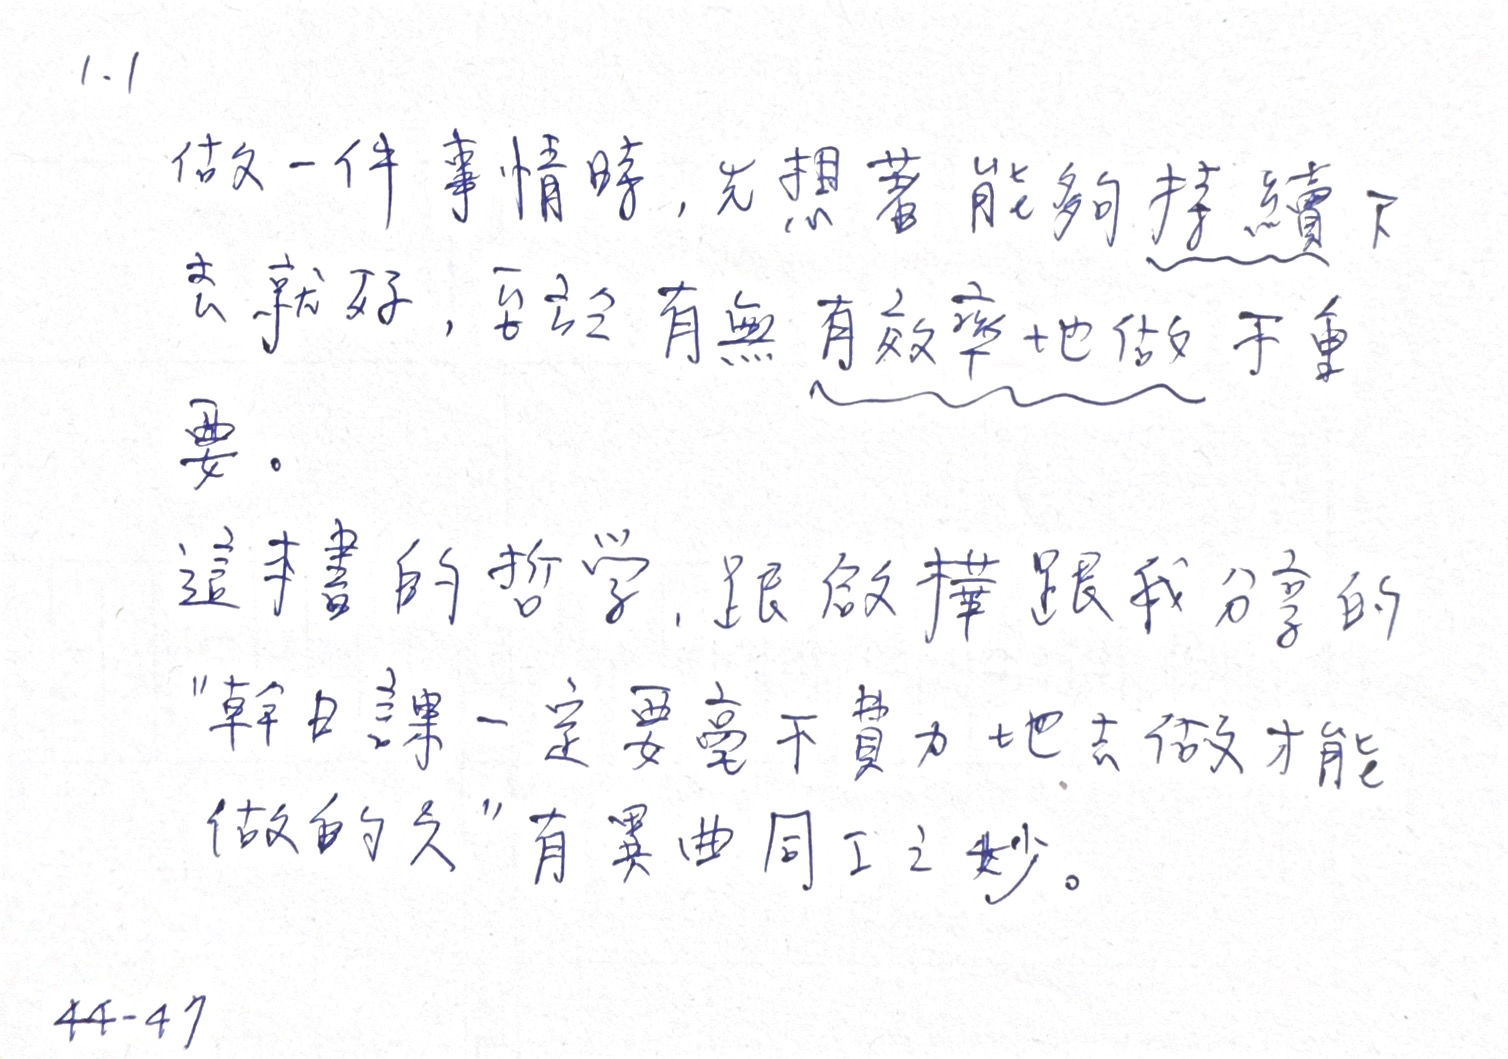 1.1
做一件事情時，先想著能夠持續下
去就好，至於有無有效率地做不重
要。
這本書的哲学，跟啟樺跟我分享的
"幹日課一定要毫不費力地去做才能
做的久"有異曲同工之妙。
44-47